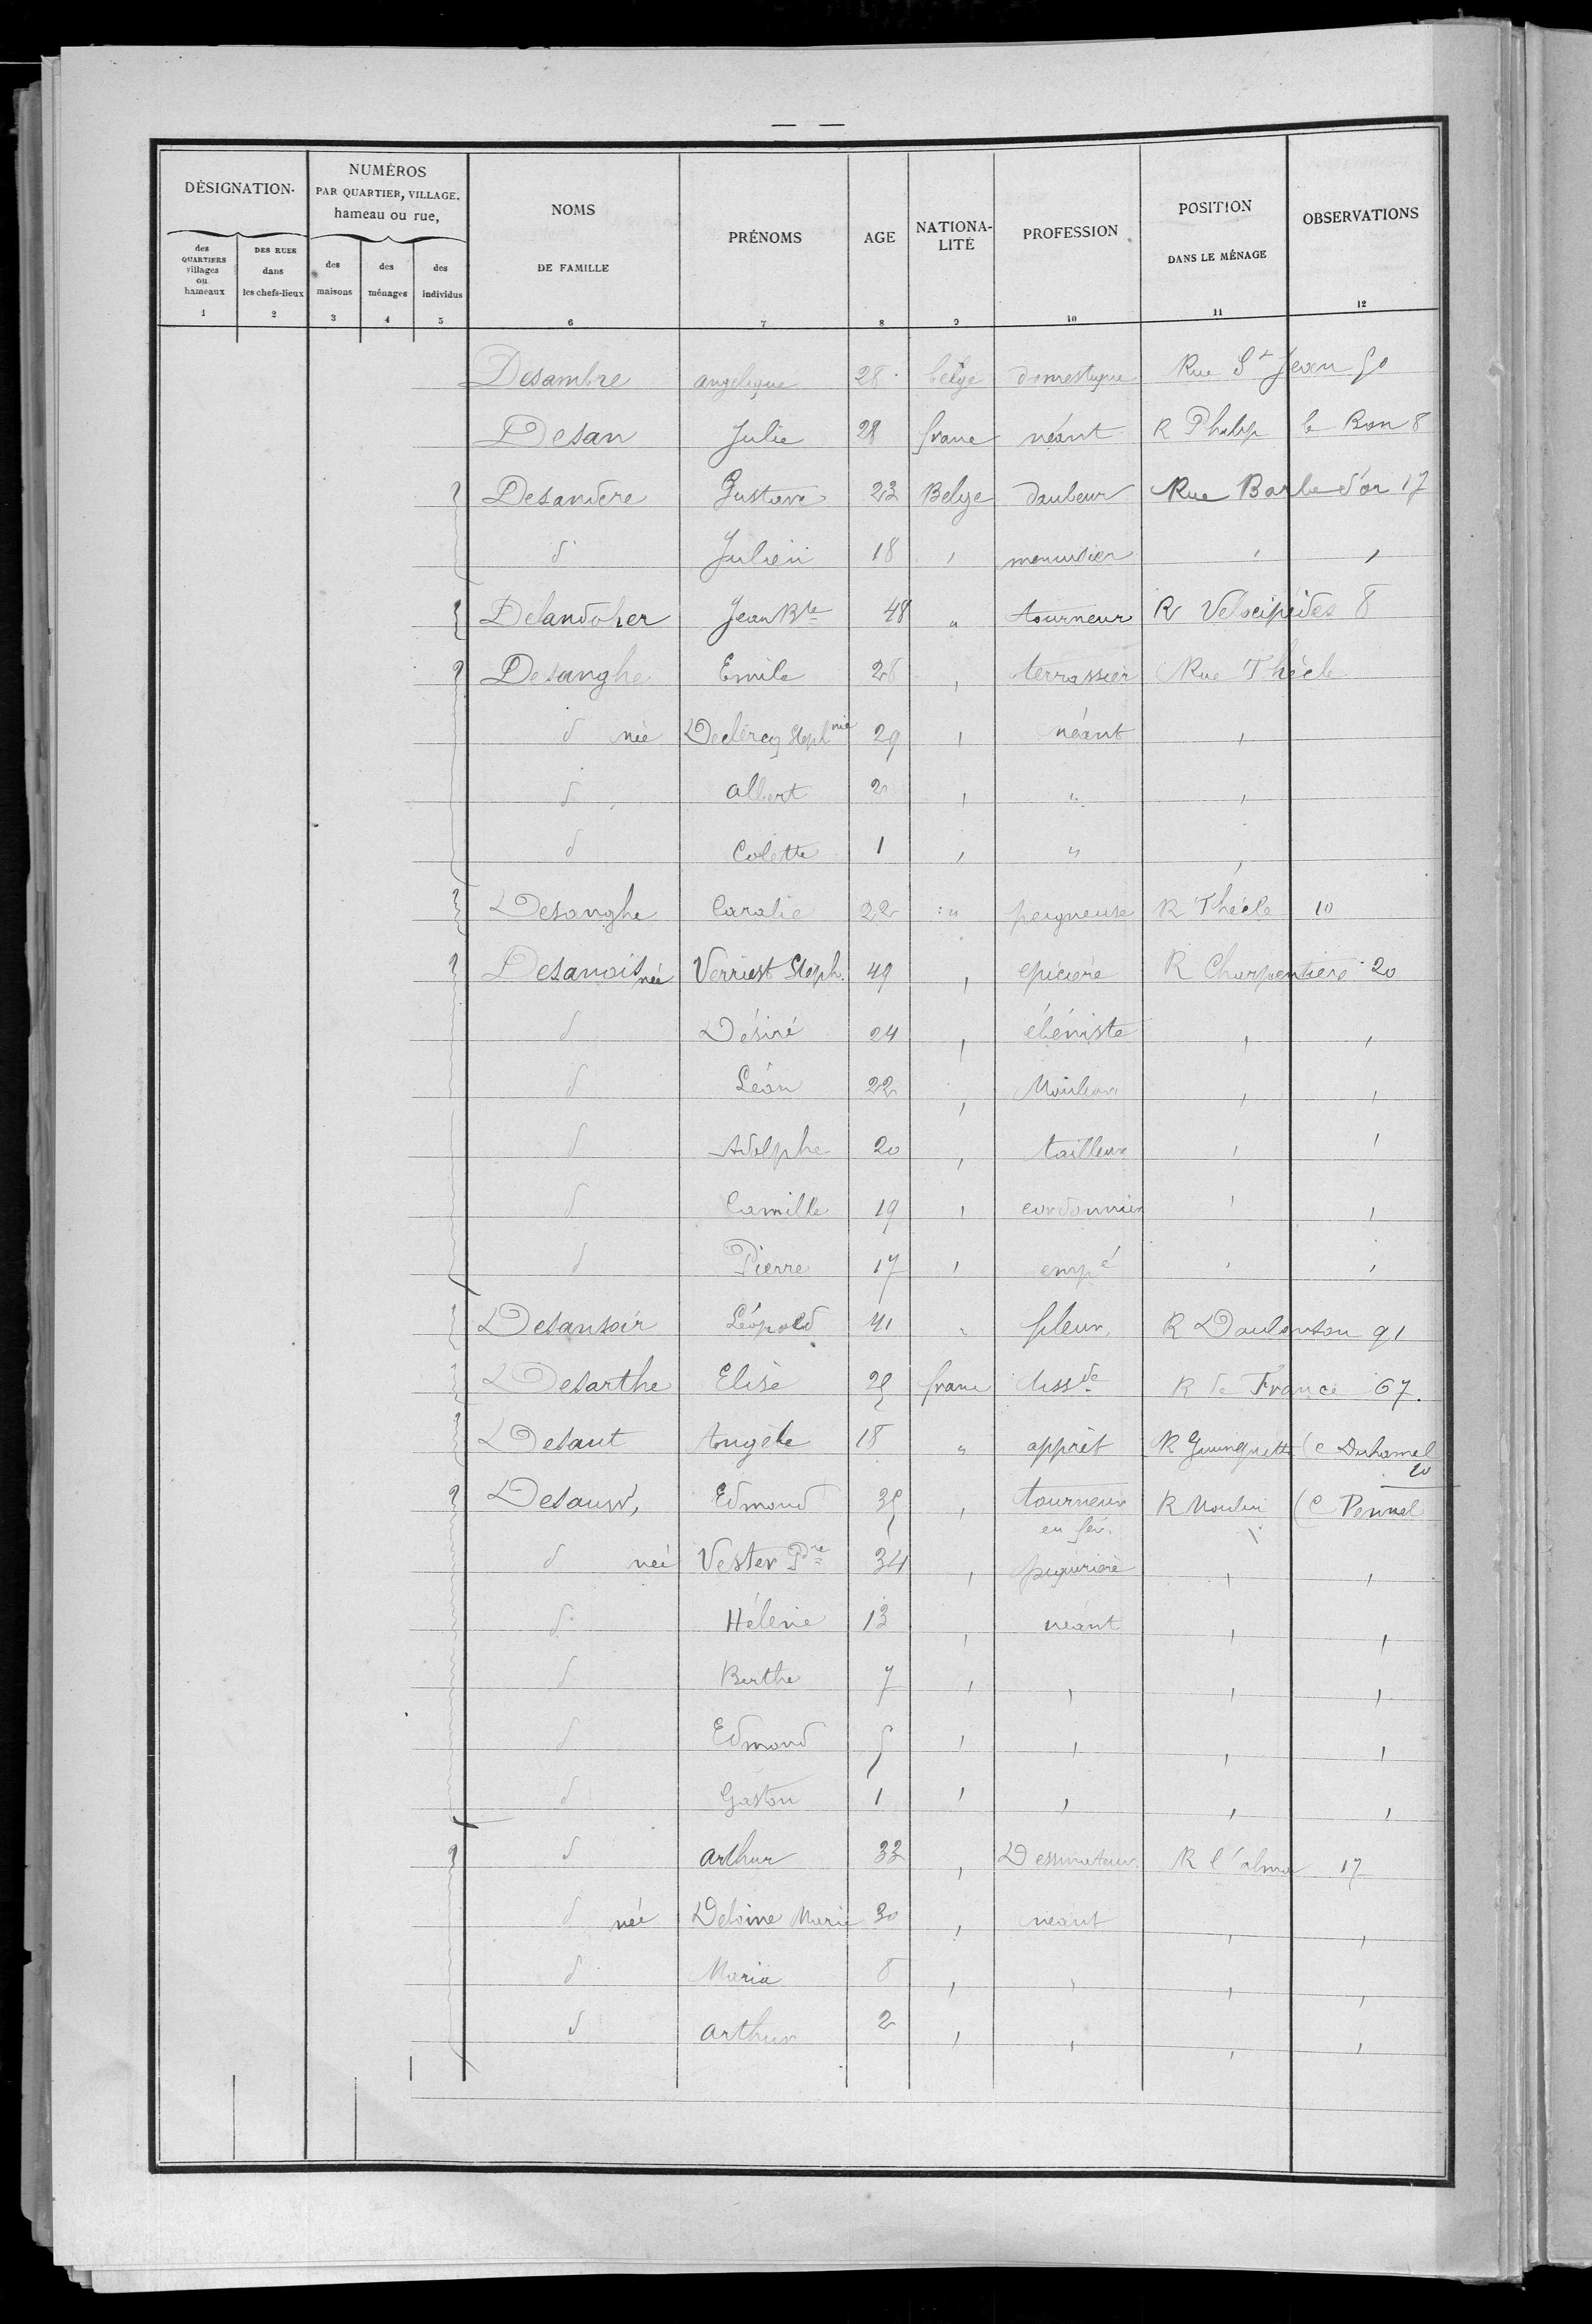 DÉSIGNATION.
NUMÉROS
PAR QUARTIER, VILLAGE.
hameau ou rue,
des
QUARTIERS
villages
ou
hameaux
DES RUES
dans
les chefs-lieux
des
maisons
des
ménages
des
individus
NOMS
DE FAMILLE
PRÉNOMS
AGE
NATIONA-
LITÉ
PROFESSION
POSITION
DANS LE MÉNAGE
OBSERVATIONS
1 2 3 4 5 6 7 8 9 10 11 12
Desambre angelique 28 belge domestique Rue St Jean 50
Desan Julie 28 franc néant R Philip le Bon 8
Desandere Gustave 23 Belge Rue Barbe d'or 17
d Julien 18 , menuisier , ,
Jean Bte 48 " tourneur R Velocipèdes 8
Desanghe Emile 28 , terrassier Rue Thécle
d née Declercq Stephnie 29 , néant ,
d albert 2 , " ,
d Colette 1 , " ,
Desanghe 22 " peigneuse R Thécle 10
Desanois née Verriest Steph. 49 , epiciere R Charpentiere 20
d Désiré 24 , ébéniste , ,
d Léon 22 , , ,
d Adolphe 20 , tailleur , ,
d Camille 19 , cordonnier , ,
d Pierre 17 , empé , ,
Desansoir Léopold 41 " fileur R Daubenton 91
Desarthe Elise 25 franc tissde R de France 67.
Desaut Angèle 18 " apprêt R Guinguette (c Duhamel
20
Edmond 35 , tourneur R Moulin (C Pennel
en fer.
d née Vester Pre 34 , piqurière , ,
d Hélène 13 , néant , ,
d Berthe 7 , , , ,
d Edmond 5 , , , ,
d Gaston 1 , , , ,
d arthur 33 , Dessinateur R l'alma 17
d née Marie 30 , néant , ,
d Maria 8 , , , ,
d arthur 2 , , , ,